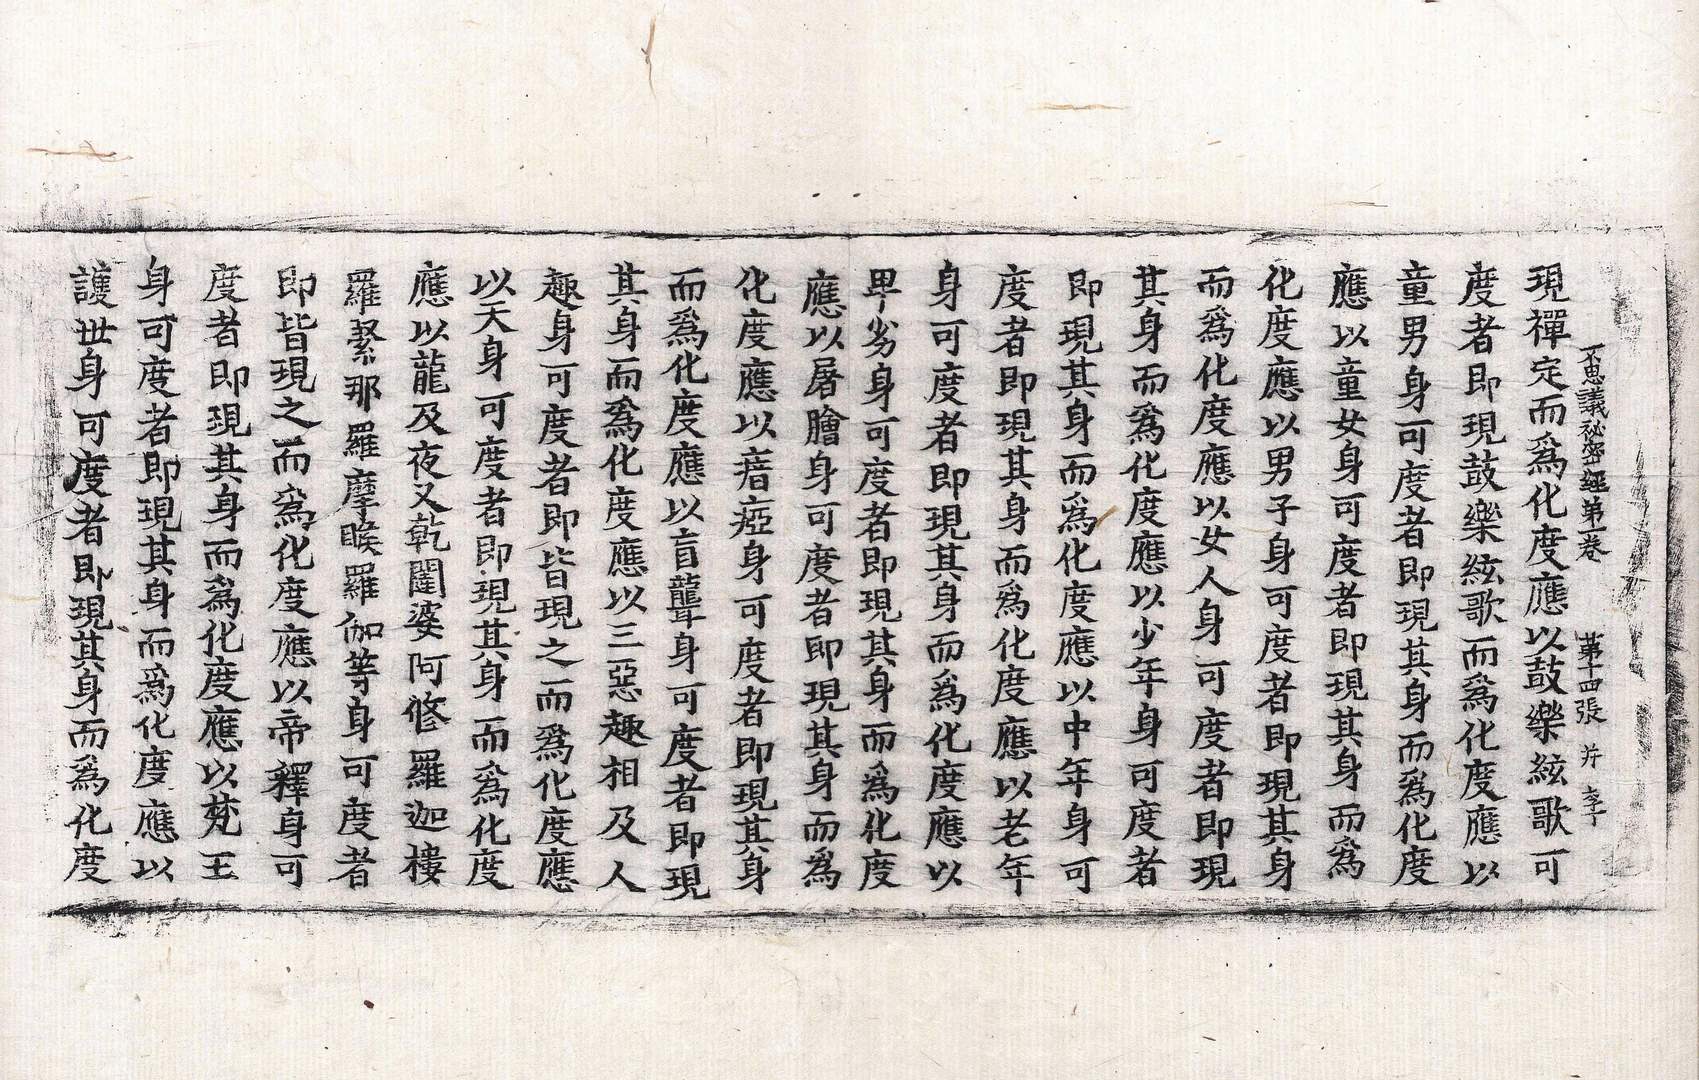 不思議祕密經第一卷　第十四張　幷　李
現禪定而爲化度應以鼓樂絃歌可
度者即現鼓樂絃歌而爲化度應以
童男身可度者即現其身而爲化度
應以童女身可度者即現其身而爲
化度應以男子身可度者即現其身
而爲化度應以女人身可度者即現
其身而爲化度應以少年身可度者
即現其身而爲化度應以中年身可
度者即現其身而爲化度應以老年
身可度者即現其身而爲化度應以
卑劣身可度者即現其身而爲化度
應以屠膾身可度者即現其身而爲
化度應以瘖瘂身可度者即現其身
而爲化度應以盲聾身可度者即現
其身而爲化度應以三惡趣相及人
趣身可度者即皆現之而爲化度應
以天身可度者即現其身而爲化度
應以龍及夜叉乾闥婆阿修羅迦樓
羅緊那羅羅摩睺羅伽等身可度者
即皆現之而爲化度應以帝釋身可
度者即現其身而爲化度應以梵王
身可度者即現其身而爲化度應以
護世身可度者即現其身而爲化度